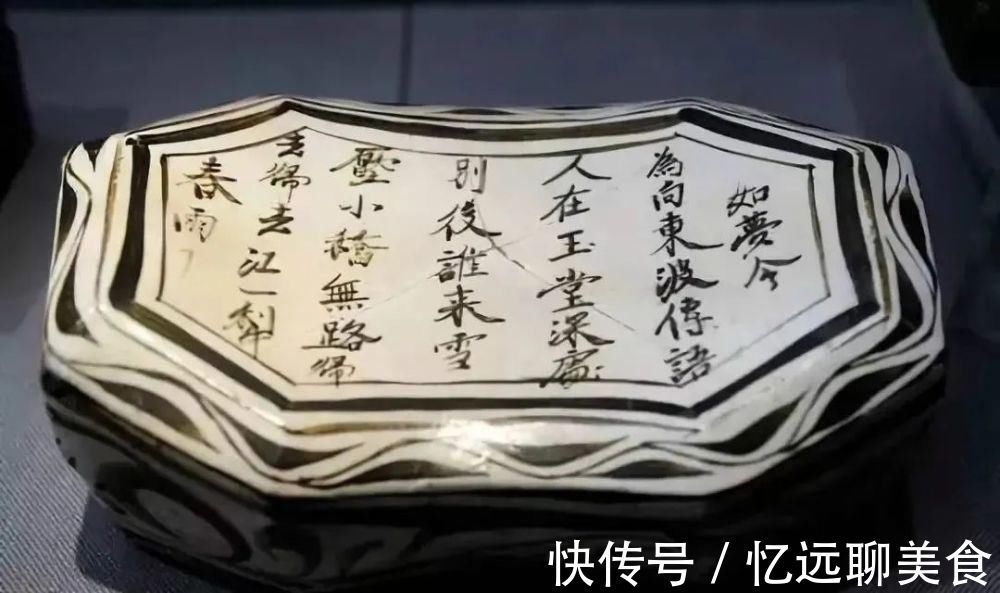 如夢令
為向東波傳語
人在玉堂深處
別後誰来雪
壓小橋無路歸
去歸去江一犁
春雨
快传号 / 忆远聊美食